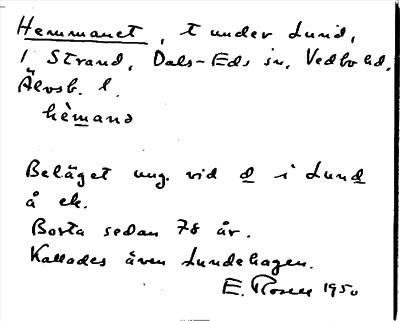 Hemmanet, t under Lund,
1 Strand, Dals-Eds sn, Vedbo hd,
Älvsb. l.
hèmanə
Beläget ung. vid d i Lund
å ek.
Borta sedan 78 år.
Kallades även Lundehagen.
E. Rosell 1950